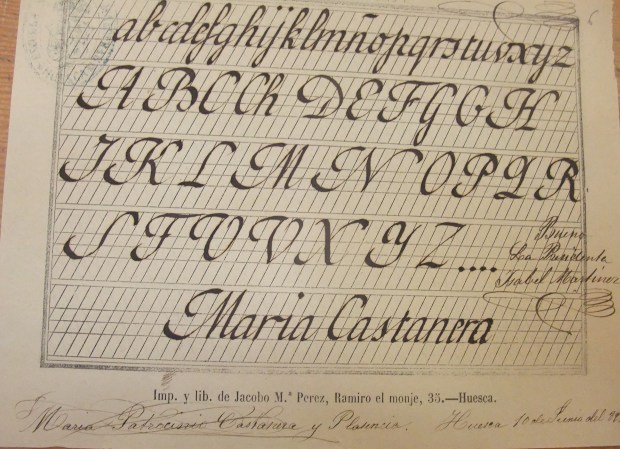 abcdefghijklmnñopqrstuvxyz
A B C Ch D E F G G H
I K L M N O P Q R
S T U V X Y Z....
Bueno
La Presidenta
Isabel Martinez
Maria Castanera
Imp. y lib. de Jacobo M.ª Perez, Ramiro el monje, 35.—Huesca.
Maria Patrocinio Castanera y Plasencia. Huesca 10 de Junio del